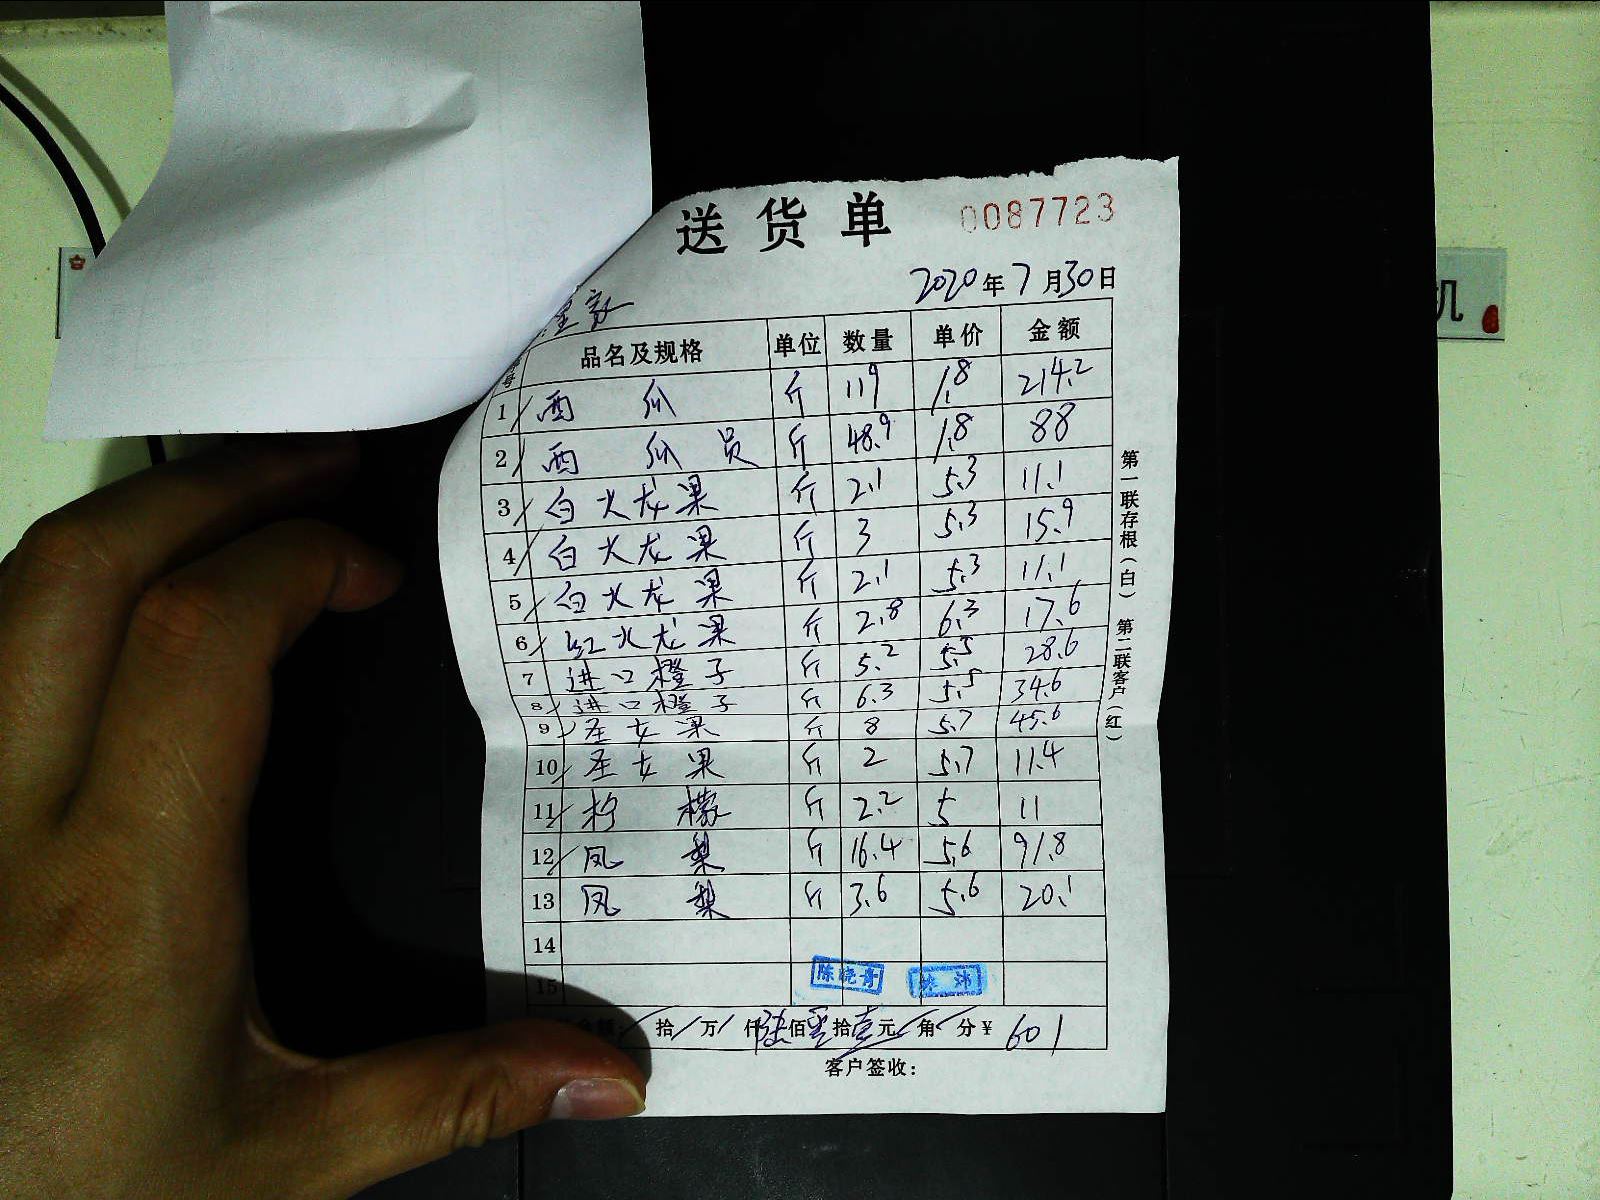 送货单 0087723
2020年7月30日
号 品名及规格 单位 数量 单价 金额
1 西瓜 斤 119 1.8 214.2
2 西瓜员 斤 48.9 1.8 88
3 白火龙果 斤 2.1 5.3 11.1
4 白火龙果 斤 3 5.3 15.9
5 白火龙果 斤 2.1 5.3 11.1
6 红火龙果 斤 2.8 6.3 17.6
7 进口橙子 斤 5.2 5.5 28.6
8 进口橙子 斤 6.3 5.5 34.6
9 圣女果 斤 8 5.7 45.6
10 圣女果 斤 2 5.7 11.4
11 柠檬 斤 2.2 5 11
12 凤梨 斤 16.4 5.6 91.8
13 凤梨 斤 3.6 5.6 20.1
14
15
陈晓青
金额: 拾 万 仟 陆佰零拾壹元 角 分 ¥ 601
客户签收:
第一联存根(白) 第二联客户(红)
机